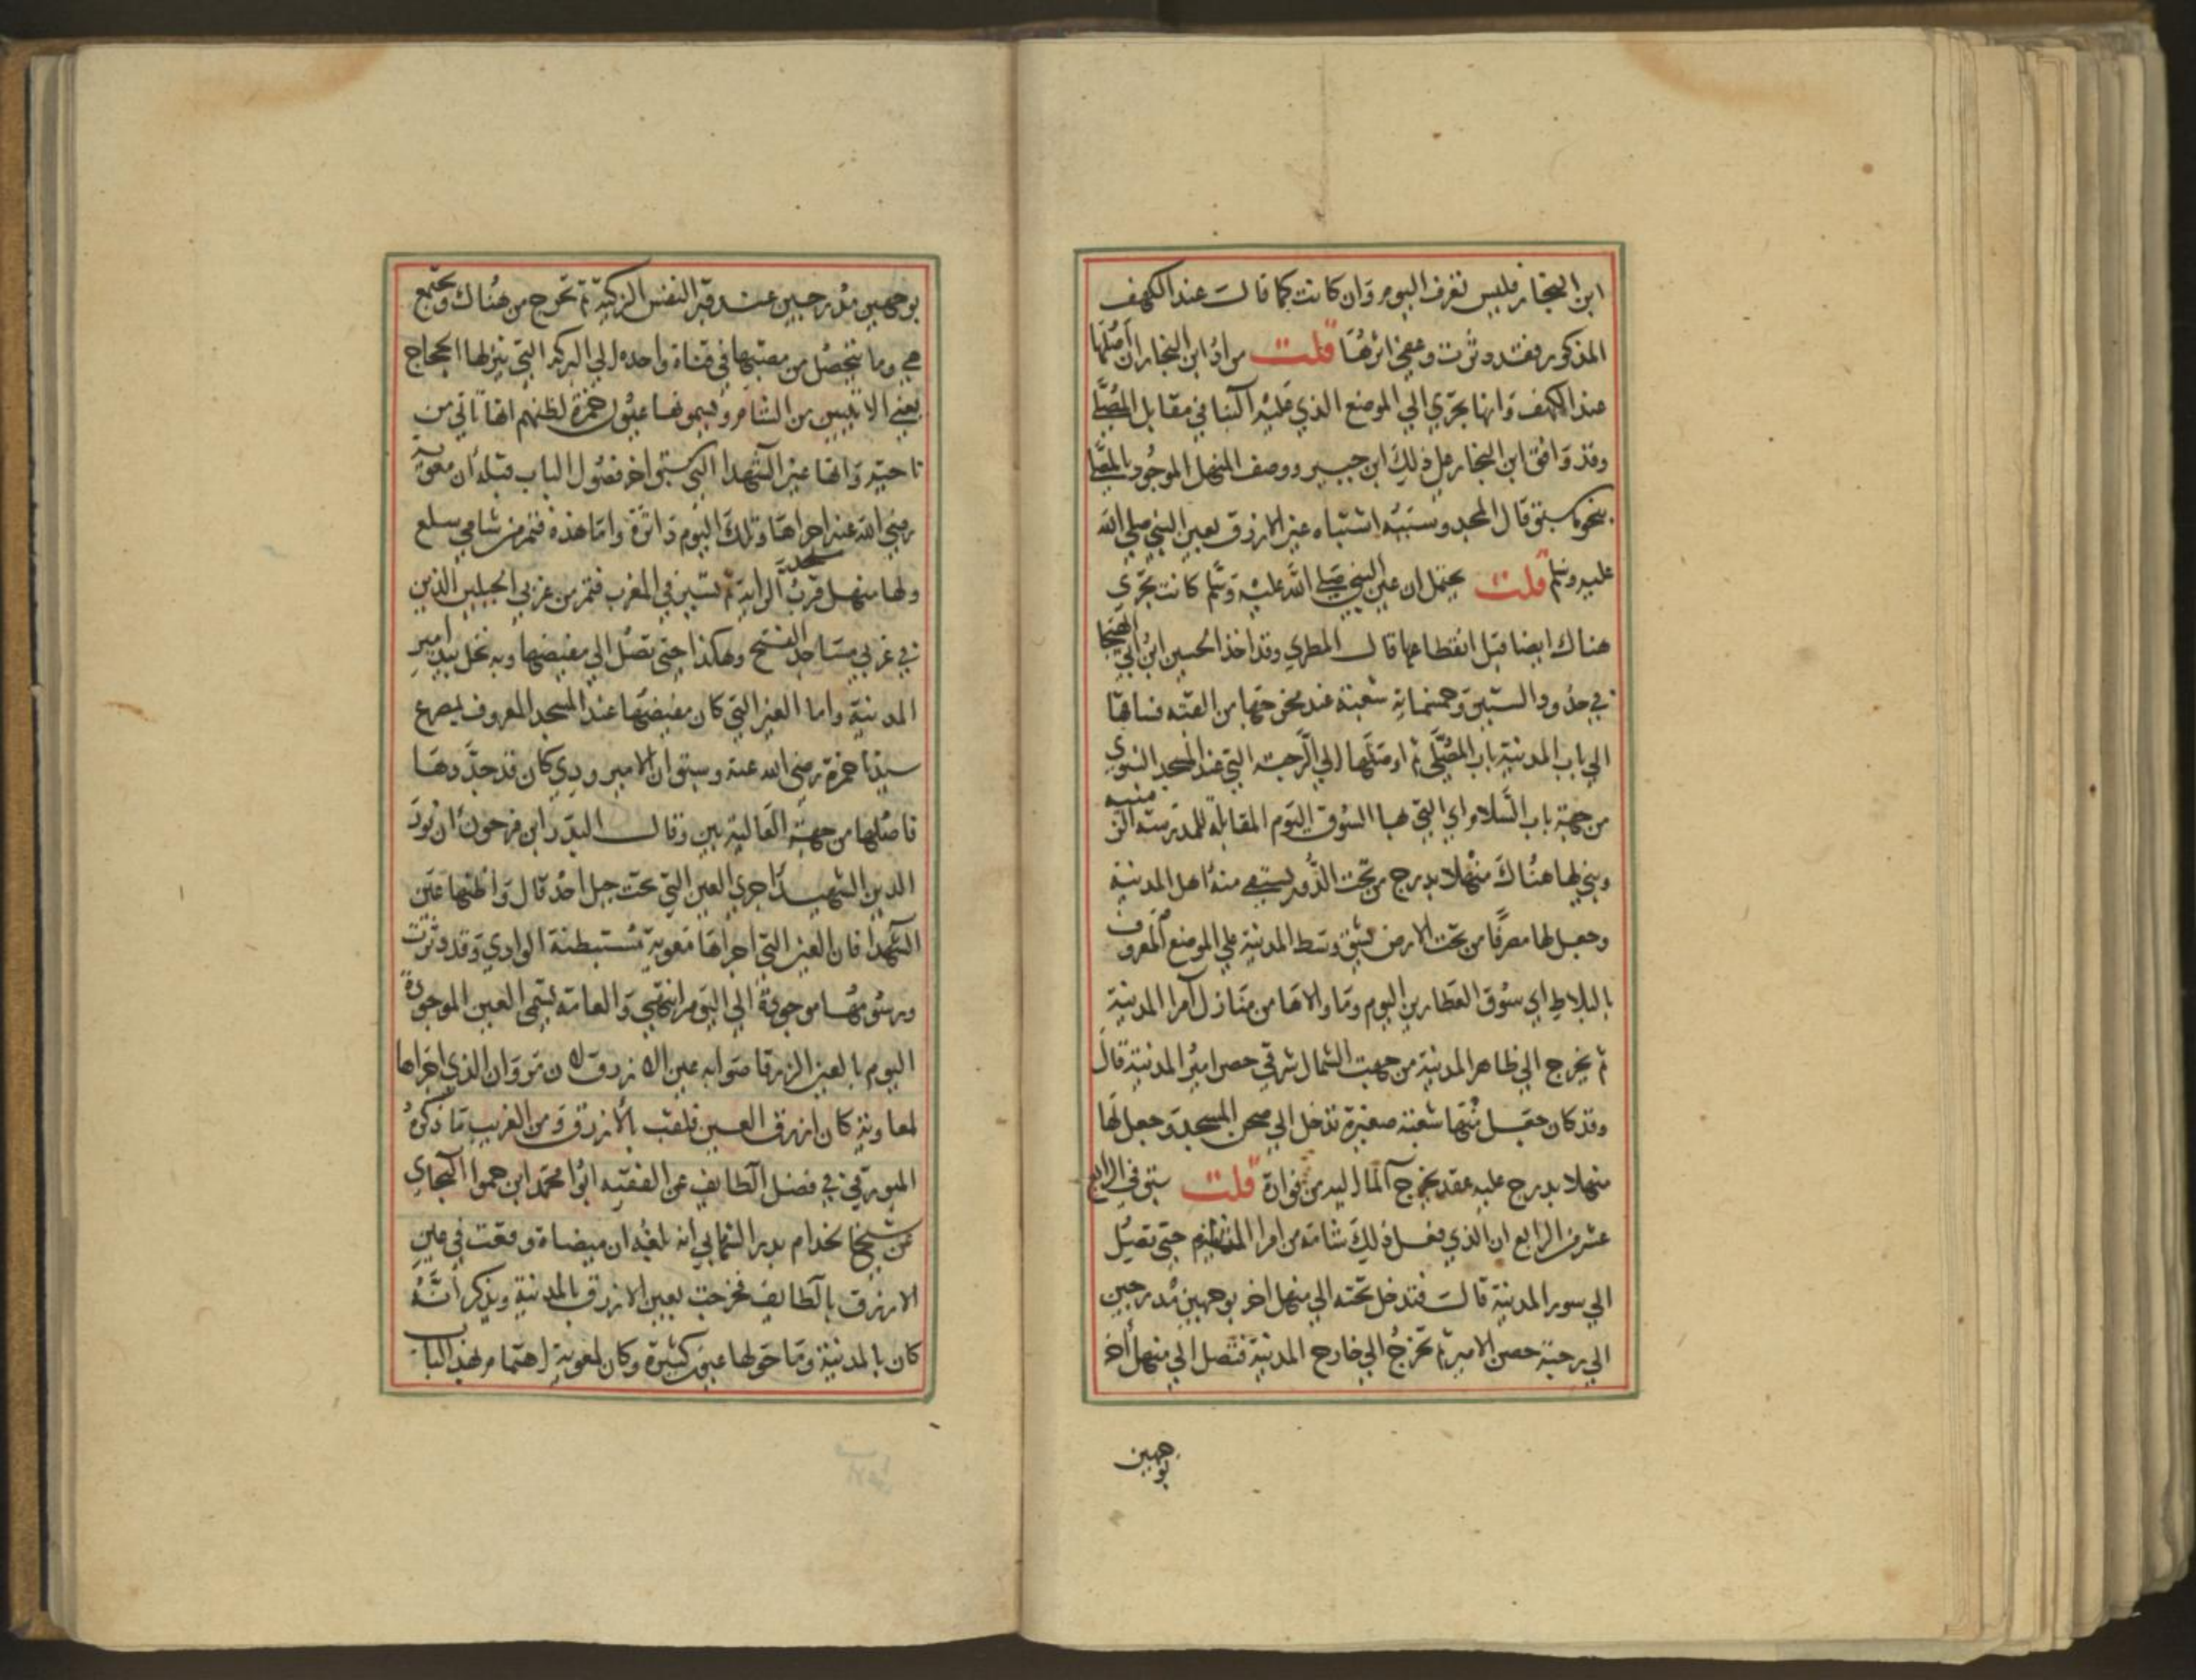 ابن النجار فليس تعرف اليوم وان كانت كما قال عند الكهف
المذكور فقد دثرت وعفى اثرها قلت مراد ابن النجار ان اصلها
عند الكهف وانها تجري الي الموضع الذي عليه البنا في مقابل المصلى
وقد وافق ابن النجار على ذلك ابن جبير ووصف المنهل الموجود بالمصلى
بنحو ما سبق قال المجد وسببه اشتباه عين الازرق بعين النبي صلى الله
عليه وسلم قلت يحتمل ان عين النبي صلى الله عليه وسلم كانت تجري
هناك ايضا قبل انقطاعها قال المطري وقد اخذ الحسين ابن ابي الهيجا
في حدود الستين وخمسماية شعبة عند مخرجها من القبه فساقها
الي باب المدينة باب المصلى ثم اوصلها الي الرحبة التي عند المسجد النبوي
من جهة باب السلام اي التي بها السوق اليوم المقابلة للمدرسة الزمنيه
وبني لها هناك منهلا بدرج من تحت الدور يستقي منه اهل المدينة
وجعل لها مصرفا من تحت الارض يشق وسط المدينة علي الموضع المعروف
بالبلاط اي سوق العطارين اليوم وما والاها من منازل امرا المدينة
ثم يخرج الي ظاهر المدينة من جهت الشمال شرقي حصن امير المدينة قال
وقد كان جعل منها شعبة صغيرة تدخل الي صحن المسجد وجعل لها
منهلا بدرج عليه عقد يخرج الما اليه من فوارة قلت سبق في الرابع
عشر من الرابع ان الذي فعل ذلك شامة من امرا حتى تصل
الي سور المدينة قال فتدخل تحته الي منهل اخر بوجهين مدرجين
الي رحبة حصن الامير ثم تخرج الي خارج المدينة فتصل الي منهل اخر
بوجهين
بوجهين مدرجين عند قبر النفس الزكية ثم تخرج من هناك وتجتمع
هي وما يتحصل من مصبها في قناة واحده الي البركه التي ينزلها الحجاج
يعني الاتيين من الشام ويسمونها عيون حمزة لظنهم انها تاتي من
ناحيته وانها عين الشهدا التي سبق اخر فصول الباب قبله ان معوية
رضي الله عنه اجراها وتلك اليوم داثرة واما هذه فتمر من شامي سلع
ولها منهل قرب مسجد الراية ثم تسير في المغرب فتمر من غربي الجبلين الذين
في غربي مساجد الفتح وهكذا حتى تصل الي مفيضها وبه نخل بيد امير
المدينة واما العين التي كان مفيضها عند المسجد المعروف بمصرع
سيدنا حمزة رضي الله عنه وسبق ان الامير ودي كان قد جددها
فاصلها من جهة العالية بين وقال البدر ابن فرحون ان نور
الدين الشهيد اجري العين التي تحت جبل احد قال واظنها عين
الشهدا فان العين التي اجراها معوية مستبطنة الوادي وقد دثرت
ورسومها موجودة الي اليوم انتهى والعامة تسمى العين الموجودة
اليوم بالعين الزرقا صوابه عين الازرق لان مروان الذي اجراها
لمعاوية كان ازرق العين فلقب بالازرق ومن الغريب ما ذكره
الميورقي في فضل الطايف عن الفقيه ابو محمد ابن حمو البجاي
عن شيخ الخدام بدر الشهابي انه بلغه ان ميضاة وقعت في عين
الازرق بالطايف فخرجت بعين الازرق بالمدينة ويذكر انه
كان بالمدينة وما حولها عيون كثيرة وكان لمعوية اهتمام بهذا الباب